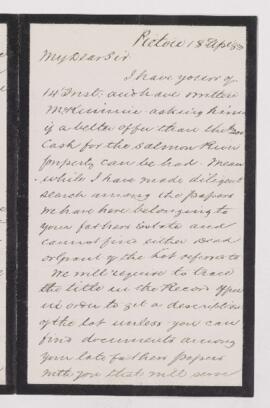 Pictou 18 Apl
My Dear Sir
I have yours of
14 Inst. and have written
asking him
if a better offer than the
Cash for the Salmon River
property can be had. Mean
while I have made diligent
search among the papers
we have here belonging to
your fathers Estate and
cannot find either Deed
or Grant of the lot
We will require to trace
the title in the Record Office
in order to get a description
of the lot unless you can
find documents among
your late fathers papers
with you that will serve